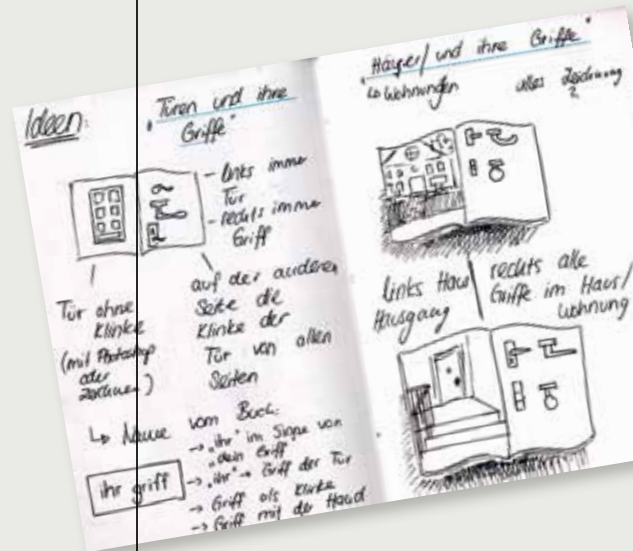 Ideen:
"Türen und ihre
Griffe"
- links immer
Tür
- rechts immer
Griff
Tür ohne
Klinke
(mit Photoshop
oder
zeichnen)
auf der anderen
Seite die
Klinke der
Tür von allen
Seiten
↳ Name vom Buch:
ihr griff
→ "ihr" im Sinne von
"dein Griff"
→ "ihr" → Griff der Tür
→ Griff als Klinke
→ Griff mit der Hand
"Häuser/ und ihre Griffe"
↳ Wohnungen
alles Zeichnung
?
links Haus
Hausgang
rechts alle
Griffe im Haus/
Wohnung